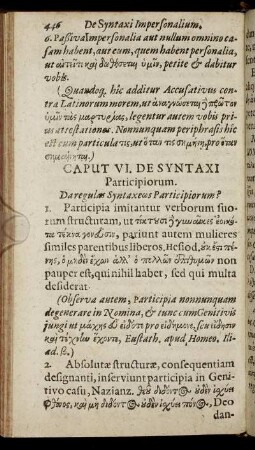 446 De Syntaxi Impersonalium.
6. Passiva Impersonalia aut nullum omnino ca-
sum habent, aut eum, quem habent personalia,
ut αἰτεῖτε καὶ δοθήσεται ὑμῖν, petite & dabitur
vobis.
(Quandoq, hic additur Accusativus con-
tra Latinorum morem, ut ἀναγνώσεται
ὑμῖν τὰς μαρτυρίας, legentur autem vobis pri-
us attestationes. Nonnunquam periphrasis hic
est cum particula τις, ut ὅταν τις σημήνῃ, pro ὅταν
CAPUT VI. DE SYNTAXI
Participiorum.
Da regulas Syntaxeos Participiorum?
1. Participia imitantur verborum suo-
rum structuram, ut τίκτουσι γυναῖκες
τέκνα γονεῦσιν, pariunt autem mulieres
similes parentibus liberos. Hesiod. οὐκ
ὁ μηδὲν ἔχων ἀλλ' ὁ πολλῶν non
pauper est, qui nihil habet, sed qui multa
desiderat
(Observa autem, Participia nonnunquam
degenerare in Nomina, & tunc cum Genitivis
jungi ut μάχης εὖ εἰδότε pro εἰδήμονε,
καὶ Eustath. apud Homeo. Ili-
ad. β.)
2. Absolutæ structuræ, consequentiam
designanti, inserviunt participia in Geni-
tivo casu, Nazianz. οὐδὲν ἰσχύει
φθόνος, καὶ μὴ οὐδὲν ἰσχύει πόνος, Deo
dan-